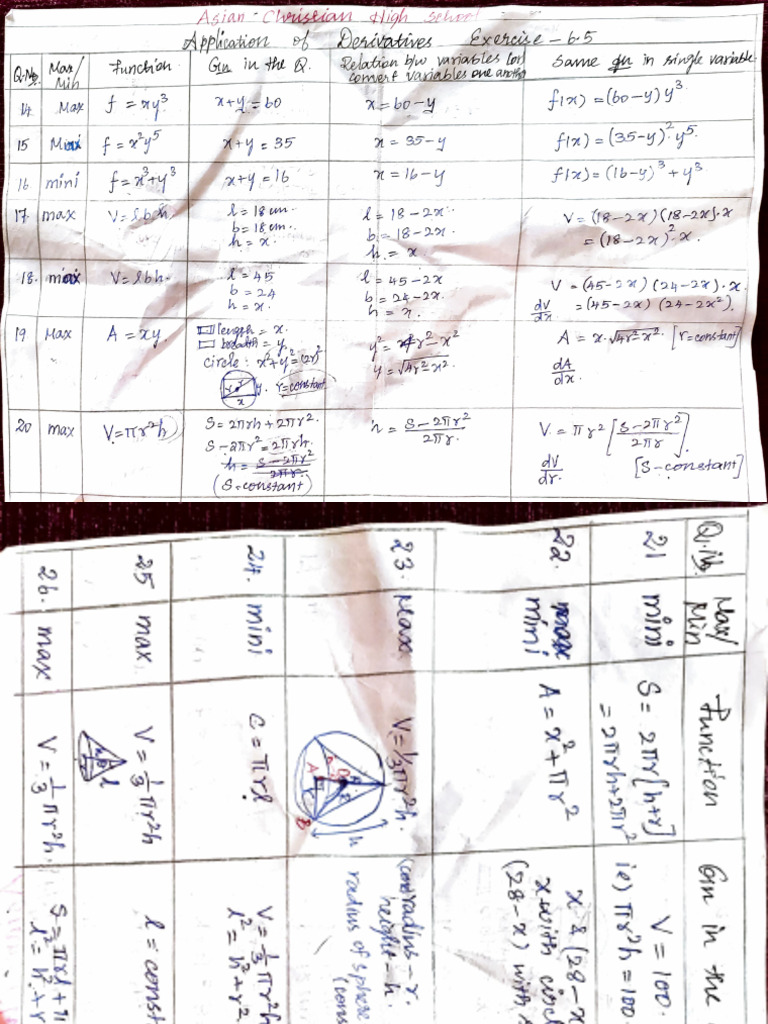 Asian Christian High School
Application of Derivatives Exercise - 6.5
Q.No. Max/Min function Gn in the Q. Relation b/w variables (or) convert variables one another Same fn in single variable
14 Max f = xy³ x+y=60 x=60-y f(x) = (60-y)y³
15 Maxi f = x²y⁵ x+y=35 x=35-y f(x) = (35-y)²y⁵
16 mini f = x³+y³ x+y=16 x=16-y f(x) = (16-y)³+y³
17 max V = lbh l = 18 cm. l = 18-2x V = (18-2x)(18-2x).x
b = 18 cm. b = 18-2x = (18-2x)².x
h = x. h = x
18. max V = lbh. l = 45 l = 45-2x V = (45-2x)(24-2x).x
b = 24 b = 24-2x. dV/dx = (45-2x)(24-2x²).
h = x. h = x.
19 Max A = xy. length = x. y² = 4r²-x² A = x.√4r²-x². [r=constant]
breadth = y. y = √4r²-x². dA/dx.
circle: x²+y²=(2r)²
r r y. r=constant
x
20 max V=πr²h S = 2πrh+2πr². h = S-2πr²/2πr. V = πr² [S-2πr²/2πr]
S-2πr² = 2πrh. dV/dr. [S-constant]
h = S-2πr²/2πr
(S=constant)
Q.No. Max/Min Function Gn in the
21 mini S = 2πr[h+r] V = 100.
= 2πrh+2πr² ie) πr²h = 100
22. max mini A = x²+πr² x & (28-x
x with circl
(28-x) with
23. Max V=1/3πr²h. (cone) radius - r.
height - h.
radius of sphere
(cons
h
A
B
24. mini C = πrl V = 1/3πr²h
l² = h²+r²
25 max V = 1/3πr²h l = const
l
26. max V = 1/3πr²h. S = πrl+π
l² = h²+r